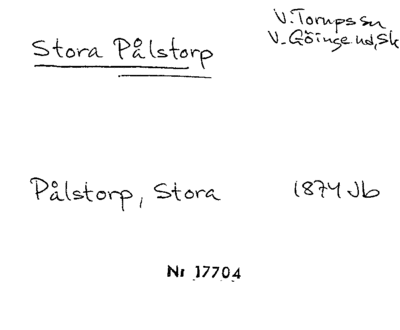 Stora Pålstorp
V. Torups sn
V. Göinge hd, Sk
Pålstorp, Stora 1874 Jb
Nr 17704